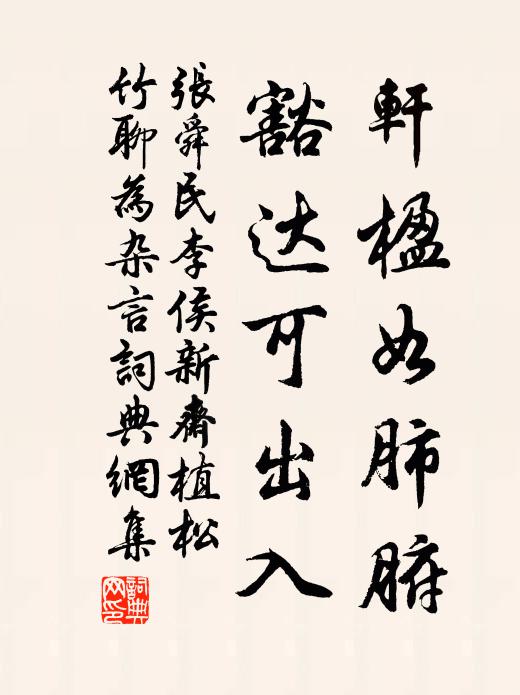 軒楹如肺腑
豁达可出入
張舜民李侯新齋植松
竹聊為杂言詞典網集